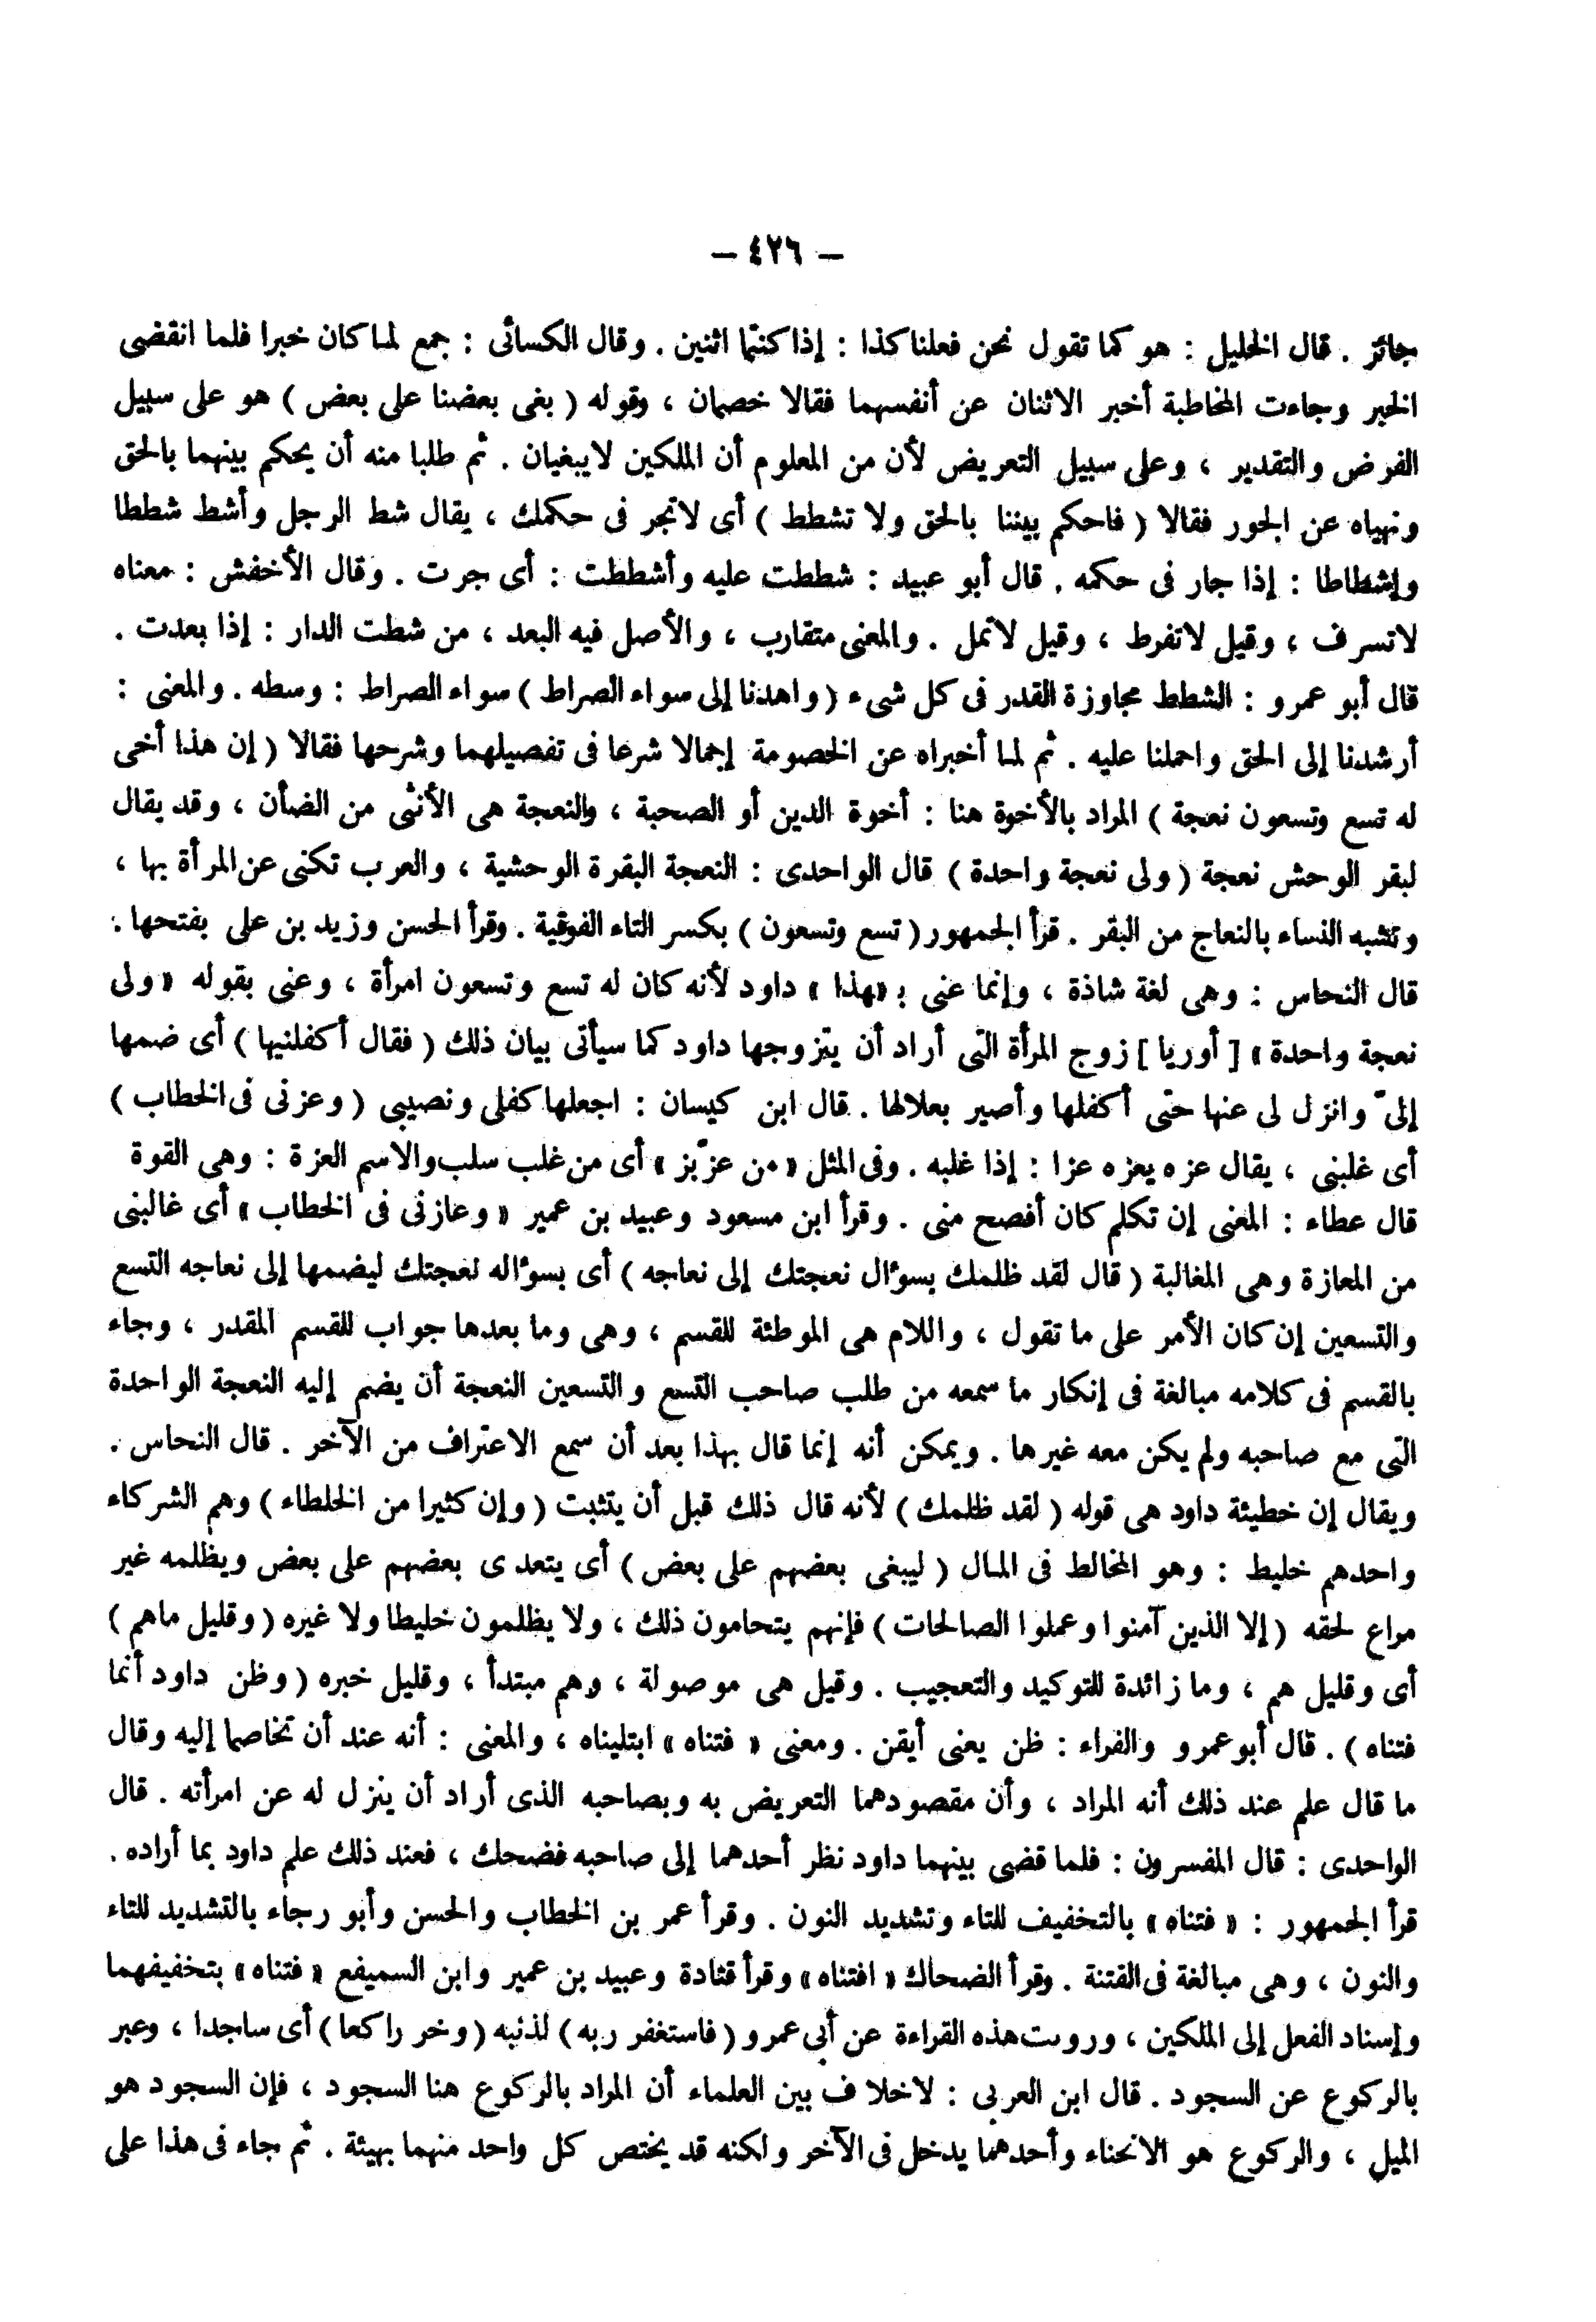 – ٤٢٦ –
جائز . قال الخليل : هو كما تقول نحن فعلنا كذا : إذا كنتما اثنين . وقال الكسائى : جمع لما كان خبرا فلما انقضى
الخبر وجاءت المخاطبة أخبر الاثنان عن أنفسهما فقالا خصمان ، وقوله ( بغى بعضنا على بعض ) هو على سبيل
الفرض والتقدير ، وعلى سبيل التعريض لأن من المعلوم أن الملكين لايبغيان . ثم طلبا منه أن يحكم بينهما بالحق
ونهياه عن الجور فقالا ( فاحكم بيننا بالحق ولا تشطط ) أى لاتجر فى حكمك ، يقال شط الرجل وأشط شططا
وإشطاطا : إذا جار فى حكمه . قال أبو عبيد : شططت عليه وأشططت : أى جرت . وقال الأخفش : معناه
لاتسرف ، وقيل لاتفرط ، وقيل لاتمل . والمعنى متقارب ، والأصل فيه البعد ، من شطت الدار : إذا بعدت .
قال أبو عمرو : الشطط مجاوزة القدر فى كل شىء ( واهدنا إلى سواء الصراط ) سواء الصراط : وسطه . والمعنى :
أرشدنا إلى الحق واحملنا عليه . ثم لما أخبراه عن الخصومة إجمالا شرعا فى تفصيلهما وشرحها فقالا ( إن هذا أخى
له تسع وتسعون نعجة ) المراد بالأخوة هنا : أخوة الدين أو الصحبة ، والنعجة هى الأنثى من الضأن ، وقد يقال
لبقر الوحش نعجة ( ولى نعجة واحدة ) قال الواحدى : النعجة البقرة الوحشية ، والعرب تكنى عن المرأة بها ،
وتشبه النساء بالنعاج من البقر . قرأ الجمهور ( تسع وتسعون ) بكسر التاء الفوقية . وقرأ الحسن وزيد بن على بفتحها .
قال النحاس : وهى لغة شاذة ، وإنما عنى بـ «هذا» داود لأنه كان له تسع وتسعون امرأة ، وعنى بقوله «ولى
نعجة واحدة» [ أوريا ] زوج المرأة التى أراد أن يتزوجها داود كما سيأتى بيان ذلك ( فقال أكفلنيها ) أى ضمها
إلىّ وانزل لى عنها حتى أكفلها وأصير بعلالها . قال ابن كيسان : اجعلها كفلى ونصيبى ( وعزنى فى الخطاب )
أى غلبنى ، يقال عزه يعزه عزا : إذا غلبه . وفى المثل «من عزّ بز» أى من غلب سلب والاسم العزة : وهى القوة
قال عطاء : المعنى إن تكلم كان أفصح منى . وقرأ ابن مسعود وعبيد بن عمير «وعازنى فى الخطاب» أى غالبنى
من المعازة وهى المغالبة ( قال لقد ظلمك بسؤال نعجتك إلى نعاجه ) أى بسؤاله نعجتك ليضمها إلى نعاجه التسع
والتسعين إن كان الأمر على ما تقول ، واللام هى الموطئة للقسم ، وهى وما بعدها جواب للقسم المقدر ، وجاء
بالقسم فى كلامه مبالغة فى إنكار ما سمعه من طلب صاحب التسع والتسعين النعجة أن يضم إليه النعجة الواحدة
التى مع صاحبه ولم يكن معه غيرها . ويمكن أنه إنما قال بهذا بعد أن سمع الاعتراف من الآخر . قال النحاس .
ويقال إن خطيئة داود هى قوله ( لقد ظلمك ) لأنه قال ذلك قبل أن يتثبت ( وإن كثيرا من الخلطاء ) وهم الشركاء
واحدهم خليط : وهو المخالط فى المال ( ليبغى بعضهم على بعض ) أى يتعدى بعضهم على بعض ويظلمه غير
مراع لحقه ( إلا الذين آمنوا وعملوا الصالحات ) فإنهم يتحامون ذلك ، ولا يظلمون خليطا ولا غيره ( وقليل ماهم )
أى وقليل هم ، وما زائدة للتوكيد والتعجيب . وقيل هى موصولة ، وهم مبتدأ ، وقليل خبره ( وظن داود أنما
فتناه ) . قال أبو عمرو والفراء : ظن يعنى أيقن . ومعنى «فتناه» ابتليناه ، والمعنى : أنه عند أن تخاصما إليه وقال
ما قال علم عند ذلك أنه المراد ، وأن مقصودهما التعريض به وبصاحبه الذى أراد أن ينزل له عن امرأته . قال
الواحدى : قال المفسرون : فلما قضى بينهما داود نظر أحدهما إلى صاحبه فضحك ، فعند ذلك علم داود بما أراده .
قرأ الجمهور : «فتناه» بالتخفيف للتاء وتشديد النون . وقرأ عمر بن الخطاب والحسن وأبو رجاء بالتشديد للتاء
والنون ، وهى مبالغة فى الفتنة . وقرأ الضحاك «افتناه» وقرأ قتادة وعبيد بن عمير وابن السميفع «فتناه» بتخفيفهما
وإسناد الفعل إلى الملكين ، ورويت هذه القراءة عن أبى عمرو ( فاستغفر ربه ) لذنبه ( وخر راكعا ) أى ساجدا ، وعبر
بالركوع عن السجود . قال ابن العربى : لاخلاف بين العلماء أن المراد بالركوع هنا السجود ، فإن السجود هو
الميل ، والركوع هو الانحناء وأحدهما يدخل فى الآخر ولكنه قد يختص كل واحد منهما بهيئة . ثم جاء فى هذا على